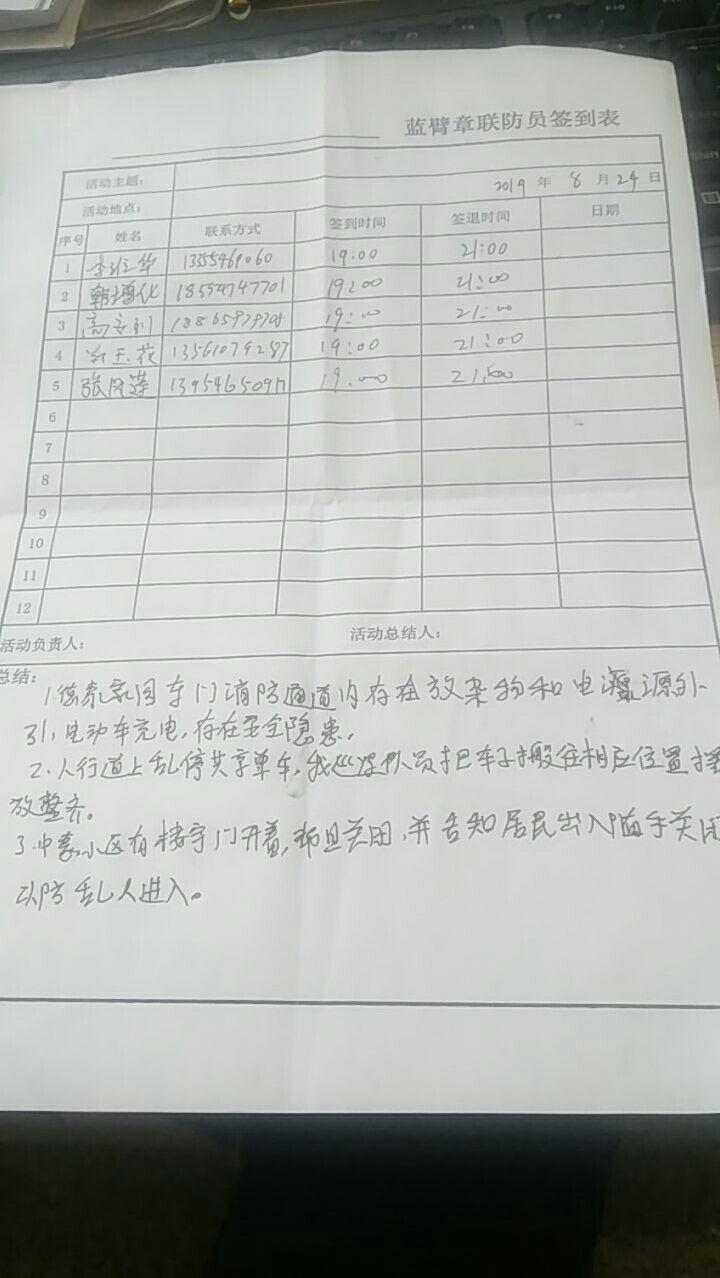 蓝臂章联防员签到表
活动主题：
2019 年 8 月 24 日
活动地点：
序号 姓名 联系方式 签到时间 签退时间 日期
1 华 13355461060 19:00 21:00
2 韩增化 18554747701 19:00 21:00
3 高 19:00 21:00
4 玉花 13561079287 19:00 21:00
5 张风莲 1395465091 19:00 21:00
6
7
8
9
10
11
12
活动负责人： 活动总结人：
总结：
1.德泰家园车门消防通道内存在放杂物和电源外
引，电动车充电，存在安全隐患。
2.人行道上乱停共享单车，我巡逻队员把车子搬往相应位置摆
放整齐。
3.中豪小区有楼宇门开着，都且关闭，并告知居民出入随手关闭
以防乱人进入。